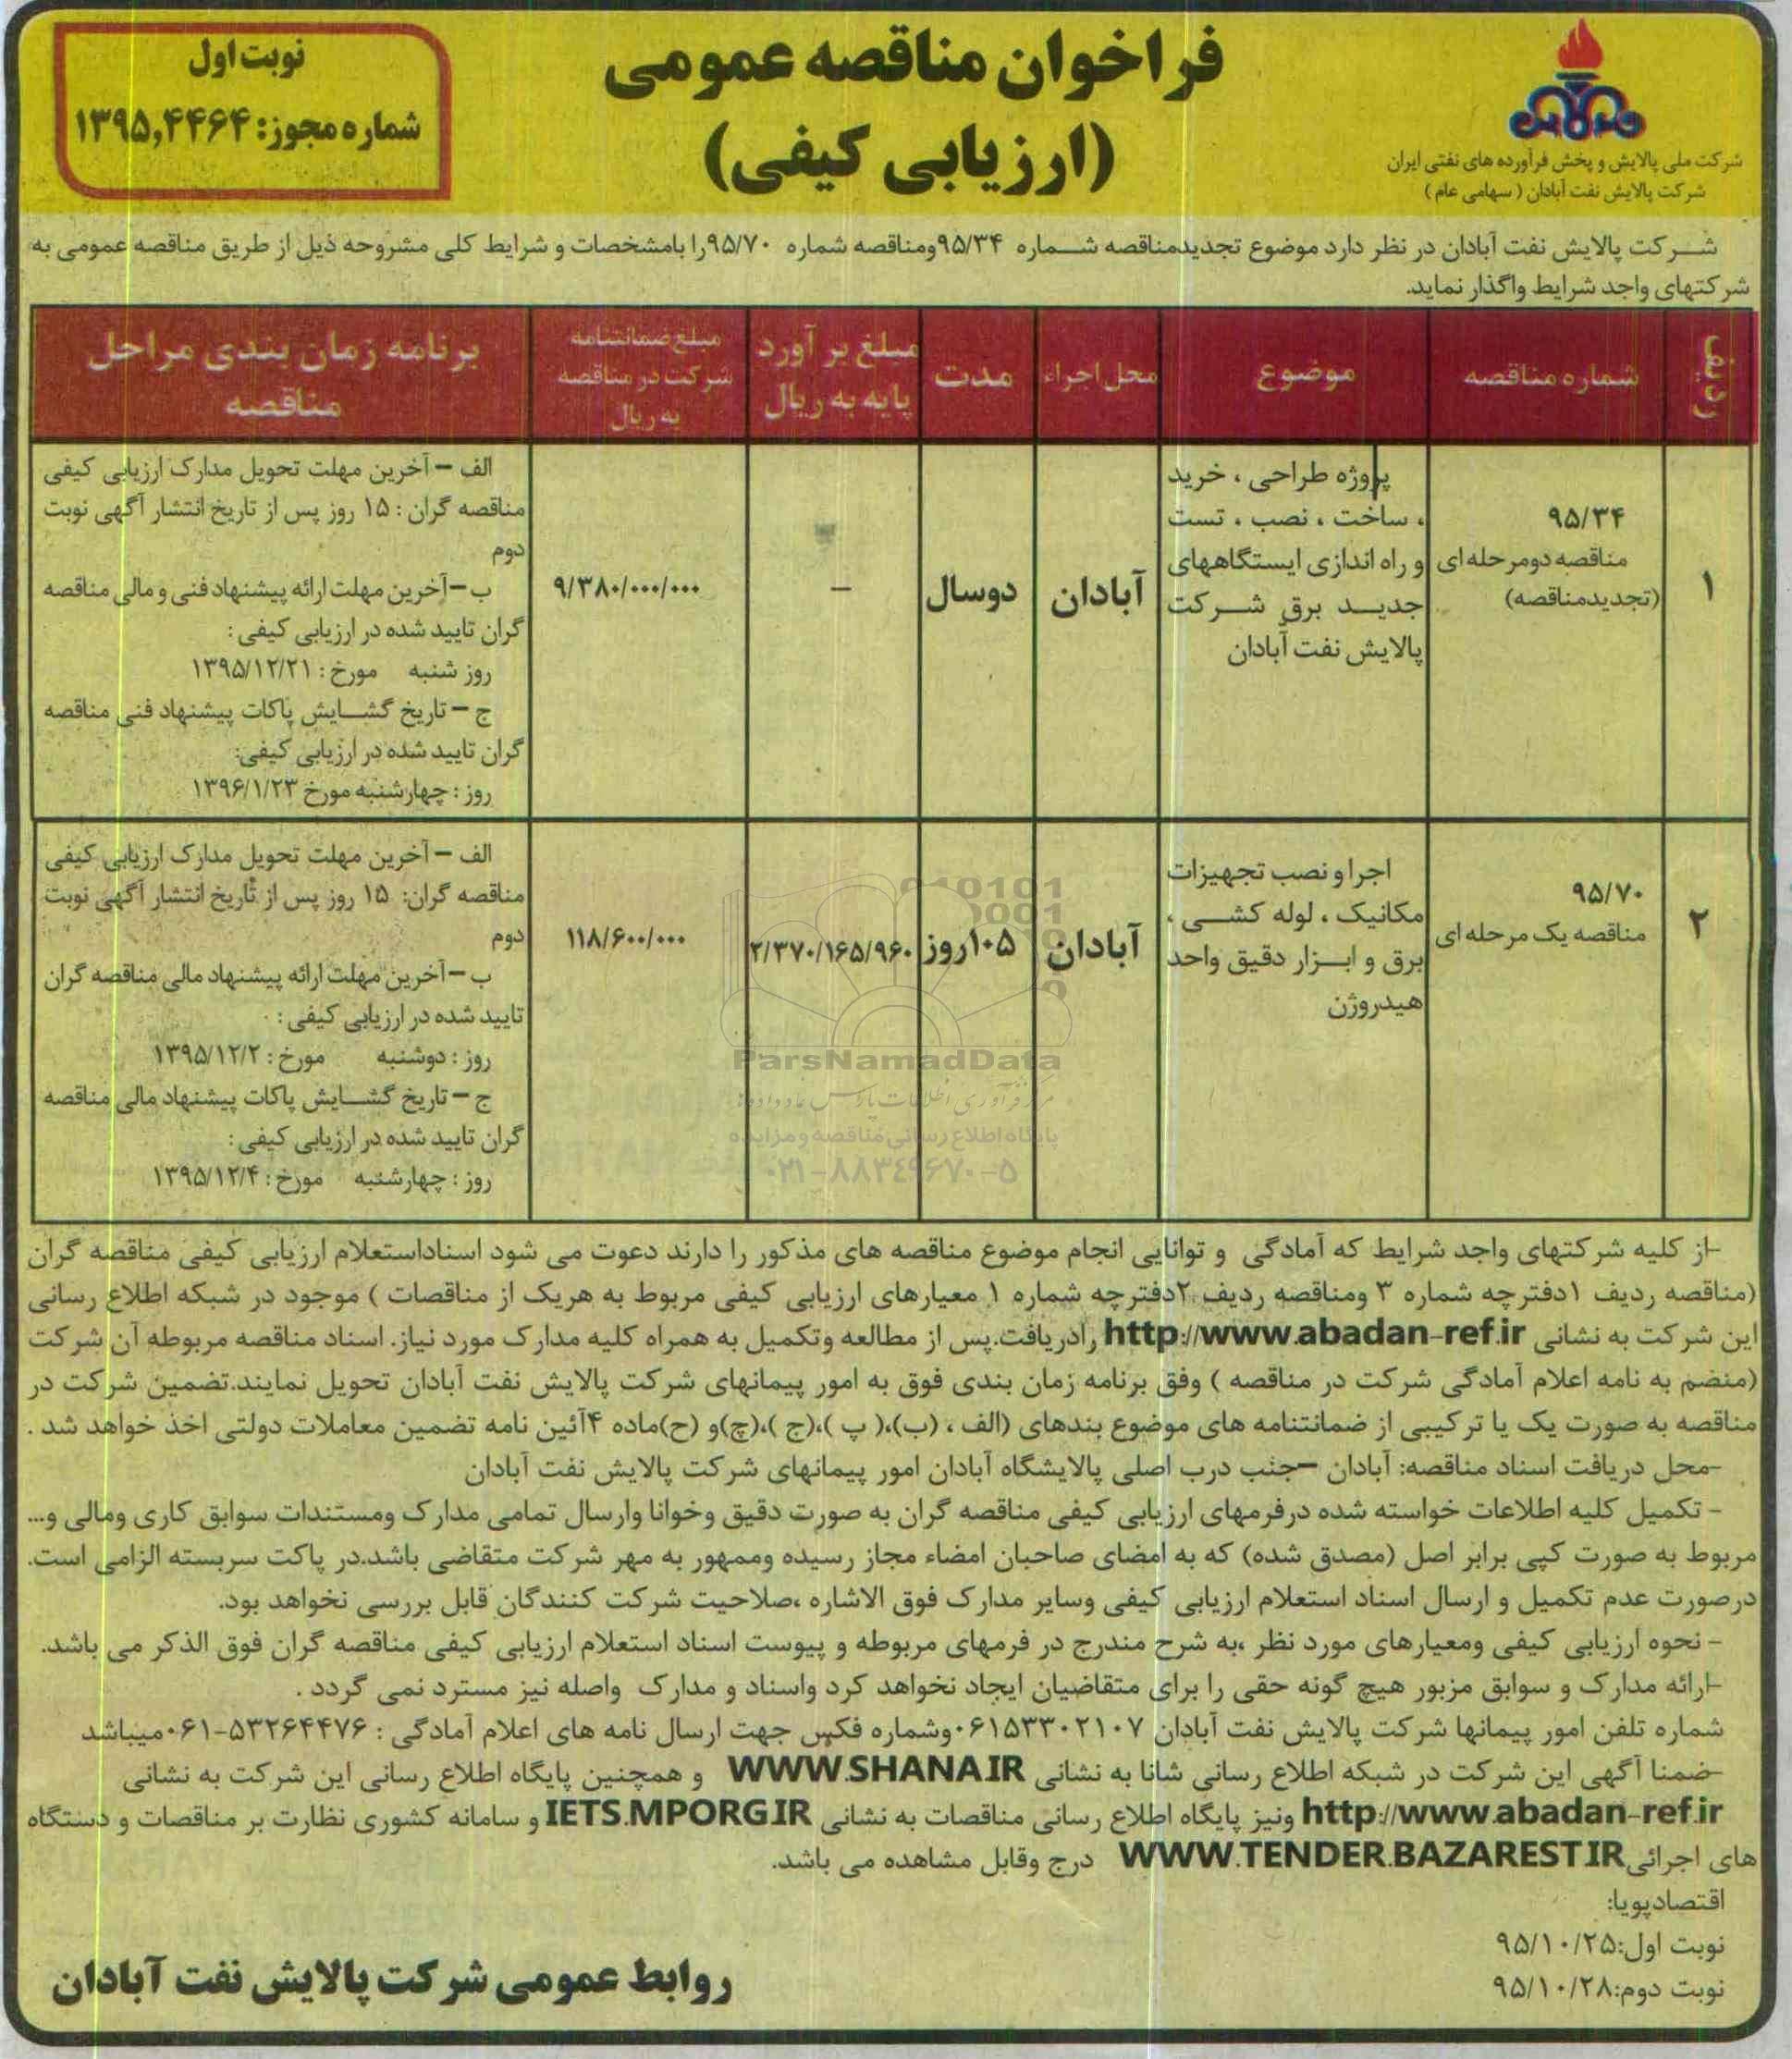 نوبت اول
شماره مجوز: ۱۳۹۵,۴۴۶۴
فراخوان مناقصه عمومی
(ارزیابی کیفی)
شرکت ملی پالایش و پخش فرآورده های نفتی ایران
شرکت پالایش نفت آبادان (سهامی عام)
شرکت پالایش نفت آبادان در نظر دارد موضوع تجدیدمناقصه شماره ۹۵/۳۴ومناقصه شماره ۹۵/۷۰را بامشخصات و شرایط کلی مشروحه ذیل از طریق مناقصه عمومی به
شرکتهای واجد شرایط واگذار نماید.
ردیف
شماره مناقصه
موضوع
محل اجراء
مدت
مبلغ برآورد
پایه به ریال
مبلغ ضمانتنامه
شرکت در مناقصه
به ریال
برنامه زمان بندی مراحل
مناقصه
۱
۹۵/۳۴
مناقصه دومرحله ای
(تجدیدمناقصه)
پروژه طراحی ، خرید
، ساخت ، نصب ، تست
و راه اندازی ایستگاههای
جدید برق شرکت
پالایش نفت آبادان
آبادان
دوسال
–
۹/۳۸۰/۰۰۰/۰۰۰
الف – آخرین مهلت تحویل مدارک ارزیابی کیفی
مناقصه گران : ۱۵ روز پس از تاریخ انتشار آگهی نوبت
دوم
ب–آخرین مهلت ارائه پیشنهاد فنی و مالی مناقصه
گران تایید شده در ارزیابی کیفی :
روز شنبه مورخ : ۱۳۹۵/۱۲/۲۱
ج – تاریخ گشایش پاکات پیشنهاد فنی مناقصه
گران تایید شده در ارزیابی کیفی:
روز : چهارشنبه مورخ ۱۳۹۶/۱/۲۳
۲
۹۵/۷۰
مناقصه یک مرحله ای
اجرا و نصب تجهیزات
مکانیک ، لوله کشی ،
برق و ابزار دقیق واحد
هیدروژن
آبادان
۱۰۵روز
۲/۳۷۰/۱۶۵/۹۶۰
۱۱۸/۶۰۰/۰۰۰
الف – آخرین مهلت تحویل مدارک ارزیابی کیفی
مناقصه گران: ۱۵ روز پس از تاریخ انتشار آگهی نوبت
دوم
ب–آخرین مهلت ارائه پیشنهاد مالی مناقصه گران
تایید شده در ارزیابی کیفی :
روز : دوشنبه مورخ : ۱۳۹۵/۱۲/۲
ج – تاریخ گشایش پاکات پیشنهاد مالی مناقصه
گران تایید شده در ارزیابی کیفی :
روز : چهارشنبه مورخ : ۱۳۹۵/۱۲/۴
ParsNamadData
پایگاه اطلاع رسانی مناقصه و مزایده
۰۲۱-۸۸۳۴۹۶۷۰-۵
-از کلیه شرکتهای واجد شرایط که آمادگی و توانایی انجام موضوع مناقصه های مذکور را دارند دعوت می شود اسناداستعلام ارزیابی کیفی مناقصه گران
(مناقصه ردیف ۱دفترچه شماره ۳ ومناقصه ردیف ۲دفترچه شماره ۱ معیارهای ارزیابی کیفی مربوط به هریک از مناقصات ) موجود در شبکه اطلاع رسانی
این شرکت به نشانی http://www.abadan-ref.ir رادریافت.پس از مطالعه وتکمیل به همراه کلیه مدارک مورد نیاز. اسناد مناقصه مربوطه آن شرکت
(منضم به نامه اعلام آمادگی شرکت در مناقصه ) وفق برنامه زمان بندی فوق به امور پیمانهای شرکت پالایش نفت آبادان تحویل نمایند.تضمین شرکت در
مناقصه به صورت یک یا ترکیبی از ضمانتنامه های موضوع بندهای (الف ، (ب)،( پ )،(ج )،(چ)و (ح)ماده ۴آئین نامه تضمین معاملات دولتی اخذ خواهد شد .
-محل دریافت اسناد مناقصه: آبادان –جنب درب اصلی پالایشگاه آبادان امور پیمانهای شرکت پالایش نفت آبادان
- تکمیل کلیه اطلاعات خواسته شده درفرمهای ارزیابی کیفی مناقصه گران به صورت دقیق وخوانا وارسال تمامی مدارک ومستندات سوابق کاری ومالی و...
مربوط به صورت کپی برابر اصل (مصدق شده) که به امضای صاحبان امضاء مجاز رسیده وممهور به مهر شرکت متقاضی باشد.در پاکت سربسته الزامی است.
درصورت عدم تکمیل و ارسال اسناد استعلام ارزیابی کیفی وسایر مدارک فوق الاشاره ،صلاحیت شرکت کنندگان قابل بررسی نخواهد بود.
- نحوه ارزیابی کیفی ومعیارهای مورد نظر ،به شرح مندرج در فرمهای مربوطه و پیوست اسناد استعلام ارزیابی کیفی مناقصه گران فوق الذکر می باشد.
-ارائه مدارک و سوابق مزبور هیچ گونه حقی را برای متقاضیان ایجاد نخواهد کرد واسناد و مدارک واصله نیز مسترد نمی گردد .
شماره تلفن امور پیمانها شرکت پالایش نفت آبادان ۰۶۱۵۳۳۰۲۱۰۷وشماره فکس جهت ارسال نامه های اعلام آمادگی : ۵۳۲۶۴۴۷۶-۰۶۱میباشد
-ضمنا آگهی این شرکت در شبکه اطلاع رسانی شانا به نشانی WWW.SHANA.IR و همچنین پایگاه اطلاع رسانی این شرکت به نشانی
http://www.abadan-ref.ir ونیز پایگاه اطلاع رسانی مناقصات به نشانی IETS.MPORG.IR و سامانه کشوری نظارت بر مناقصات و دستگاه
های اجرائیWWW.TENDER.BAZAREST.IR درج وقابل مشاهده می باشد.
اقتصادپویا:
نوبت اول:۹۵/۱۰/۲۵
نوبت دوم:۹۵/۱۰/۲۸
روابط عمومی شرکت پالایش نفت آبادان